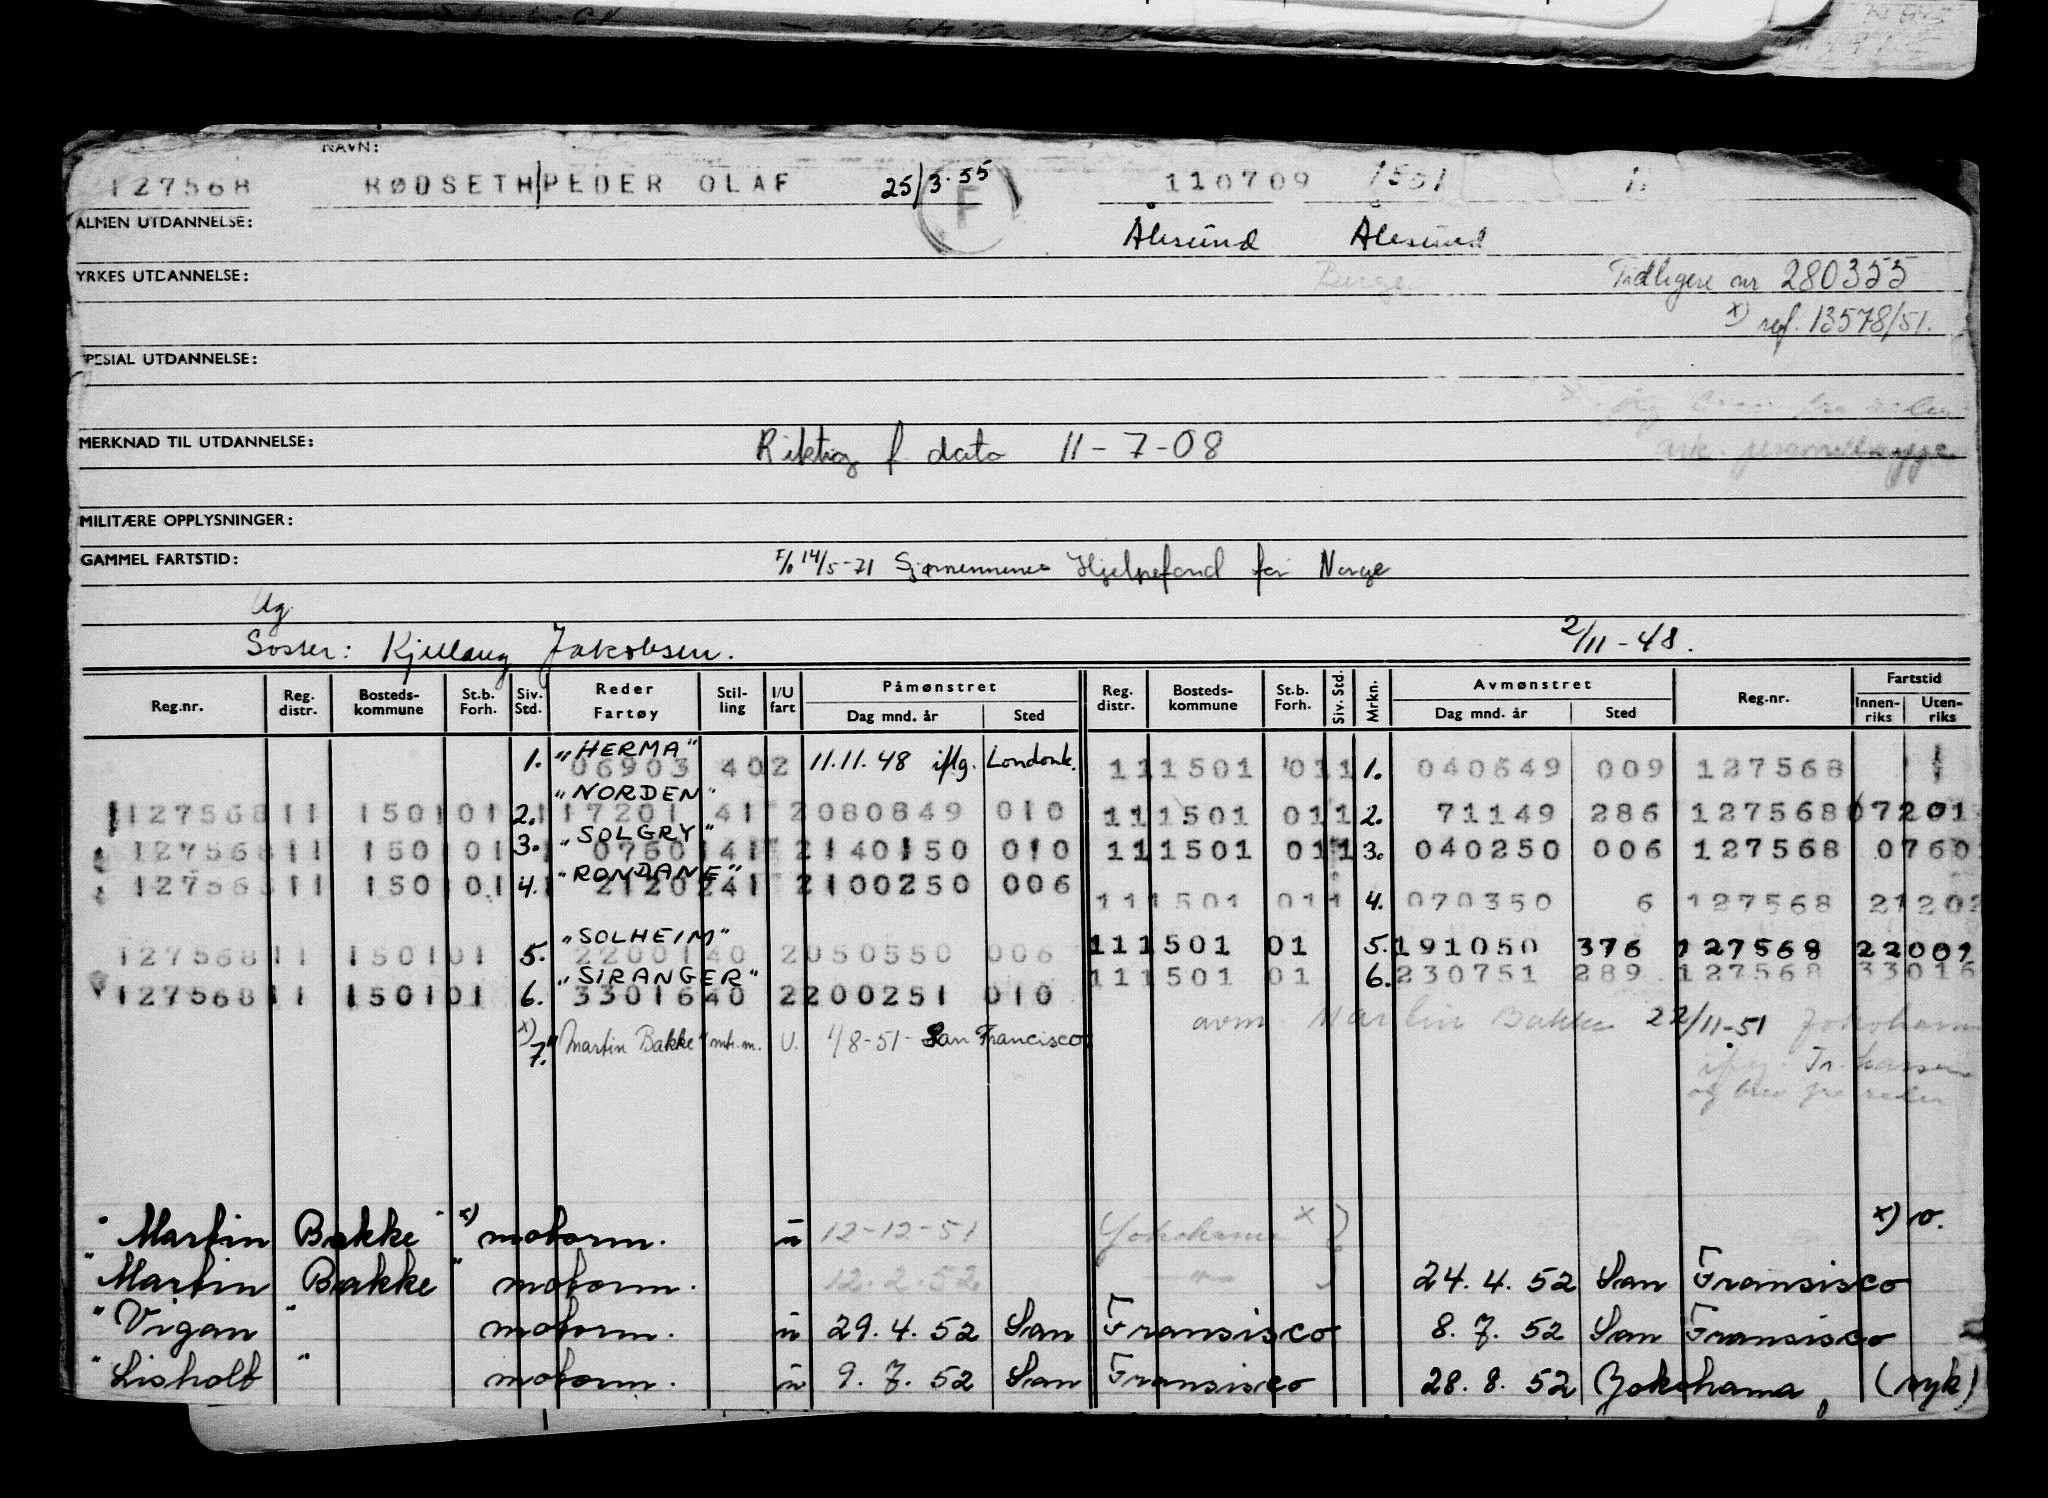 NAVN:
127568 RØDSETH/PEDER OLAF 25/3.55 F 110709 1501
ALMEN UTDANNELSE: Ålesund Ålesund
YRKES UTDANNELSE: Tidligere nr 280355
x) ref. 13578/51.
SPESIAL UTDANNELSE:
MERKNAD TIL UTDANNELSE: Riktig f data 11-7-08
MILITÆRE OPPLYSNINGER:
GAMMEL FARTSTID: F/o 14/5-71 Sjømennenes Hjelpefond for Norge
Ug
Søster: Kjellaug Jakobsen. 2/11-48.
Reg.nr. Reg. distr. Bosteds-kommune St.b. Forh. Siv. Std. Reder Fartøy Stil-ling I/U fart Påmønstret Dag mnd. år Sted Reg. distr. Bosteds-kommune St.b. Forh. Siv. Std. Mrkn. Avmønstret Dag mnd. år Sted Reg.nr. Fartstid Innen-riks Uten-riks
1. "HERMA" 06903 402 11.11.48 iflg. Londonk. 111501 011 1. 040649 009 127568
"NORDEN"
127568 11 1501 01 2. 17201 41 2080849 010 111501 011 2. 71149 286 127568 07201
"SOLGRY"
127568 11 1501 01 3. 07601 41 2140150 010 111501 011 3. 040250 006 127568 0760
"RONDANE"
127568 11 1501 01 4. 21202 41 2100250 006 111501 011 4. 070350 6 127568 21202
"SOLHEIM"
127568 11 1501 01 5. 22001 40 2050550 006 111501 01 5. 191050 376 127568 22001
"SIRANGER"
127568 11 1501 01 6. 33016 40 2200251 010 111501 01 6. 230751 289 127568 33016
x) 7. "Martin Bakke" mtr.m. U. 1/8-51 - San Francisco avm. Martin Bakke 22/11-51 Yokohama
iflg. Tr. Larsen
og brev fra reder
"Martin Bakke" x) motorm. u 12-12-51 Yokohama x) x) o.
"Martin Bakke" motorm. 12.2.52 —"— 24.4.52 San Fransisco
"Vigan" motorm. u 29.4.52 San Fransisco 8.7.52 San Fransisco
"Lisholt" motorm. u 9.7.52 San Fransisco 28.8.52 Yokohama (syk)